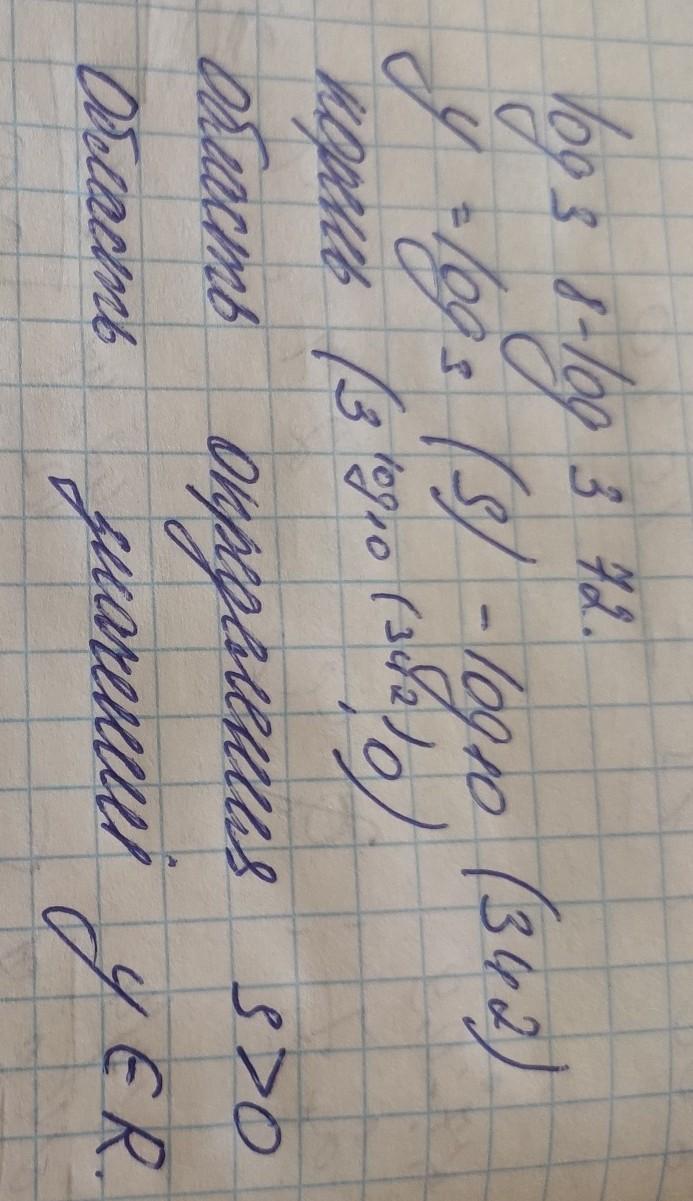 log 3 8 - log 3 72.
y = log 3 (s) - log 10 (342)
корень (3 log 10 (342), 0)
область определения s > 0
область значений y ∈ R.